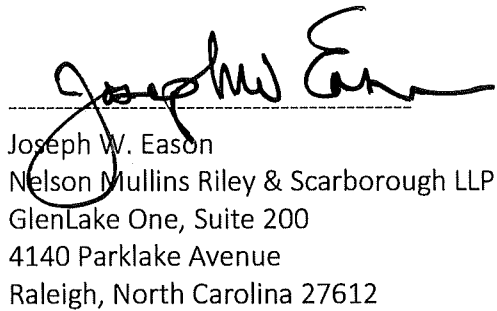 Joseph W. Eason
Joseph W. Eason
Nelson Mullins Riley & Scarborough LLP
GlenLake One, Suite 200
4140 Parklake Avenue
Raleigh, North Carolina 27612